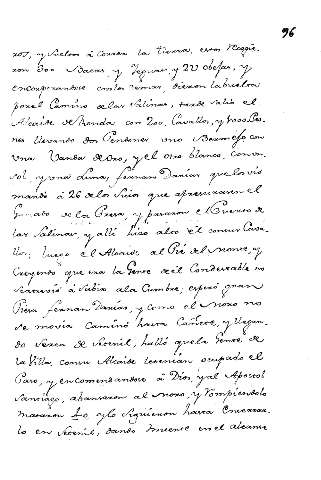 96
ros, y Suelen à Correr la tierra, eran Reggie-
ron 300 Bacas y Yeguas, y 20 obejas, y
encorporandose con los demas, dieron la buelta
por el Camino de las Salinas, tarde salio el
Alcaide de Ronda con 200 Cavallos, y 1000 Peo-
nes llevando dos Pendones uno Bermejo con
una Vanda de oro, y el otro blanco, con un
sol, y una Luna, fernan Darias que los vio
mandó à 26 de los Suios que apresurasen el
Ganado de la Presa, y pararon el Puerto de
las Salinas, y alli hizo alto el con sus Cava-
llos; luego el Alcaide al Pie del monte, y
Creyendo que era la Gente del Condestable no
se atrevió à Subir a la Cumbre, esperó gran
Pieza fernan Darias, y como el Moro no
se movia Caminó hasta Cañete, y llegan-
do serca de Setenil, halló que la Gente de
la Villa, con su Alcaide tenian ocupado el
Paso, y encomendandose à Dios, y al Apostol
Santiago, abansaron al Moro, y rompiendolo
mataron 40 y lo siguieron hasta encerrar-
lo en Setenil, dando muerte en el alcanse